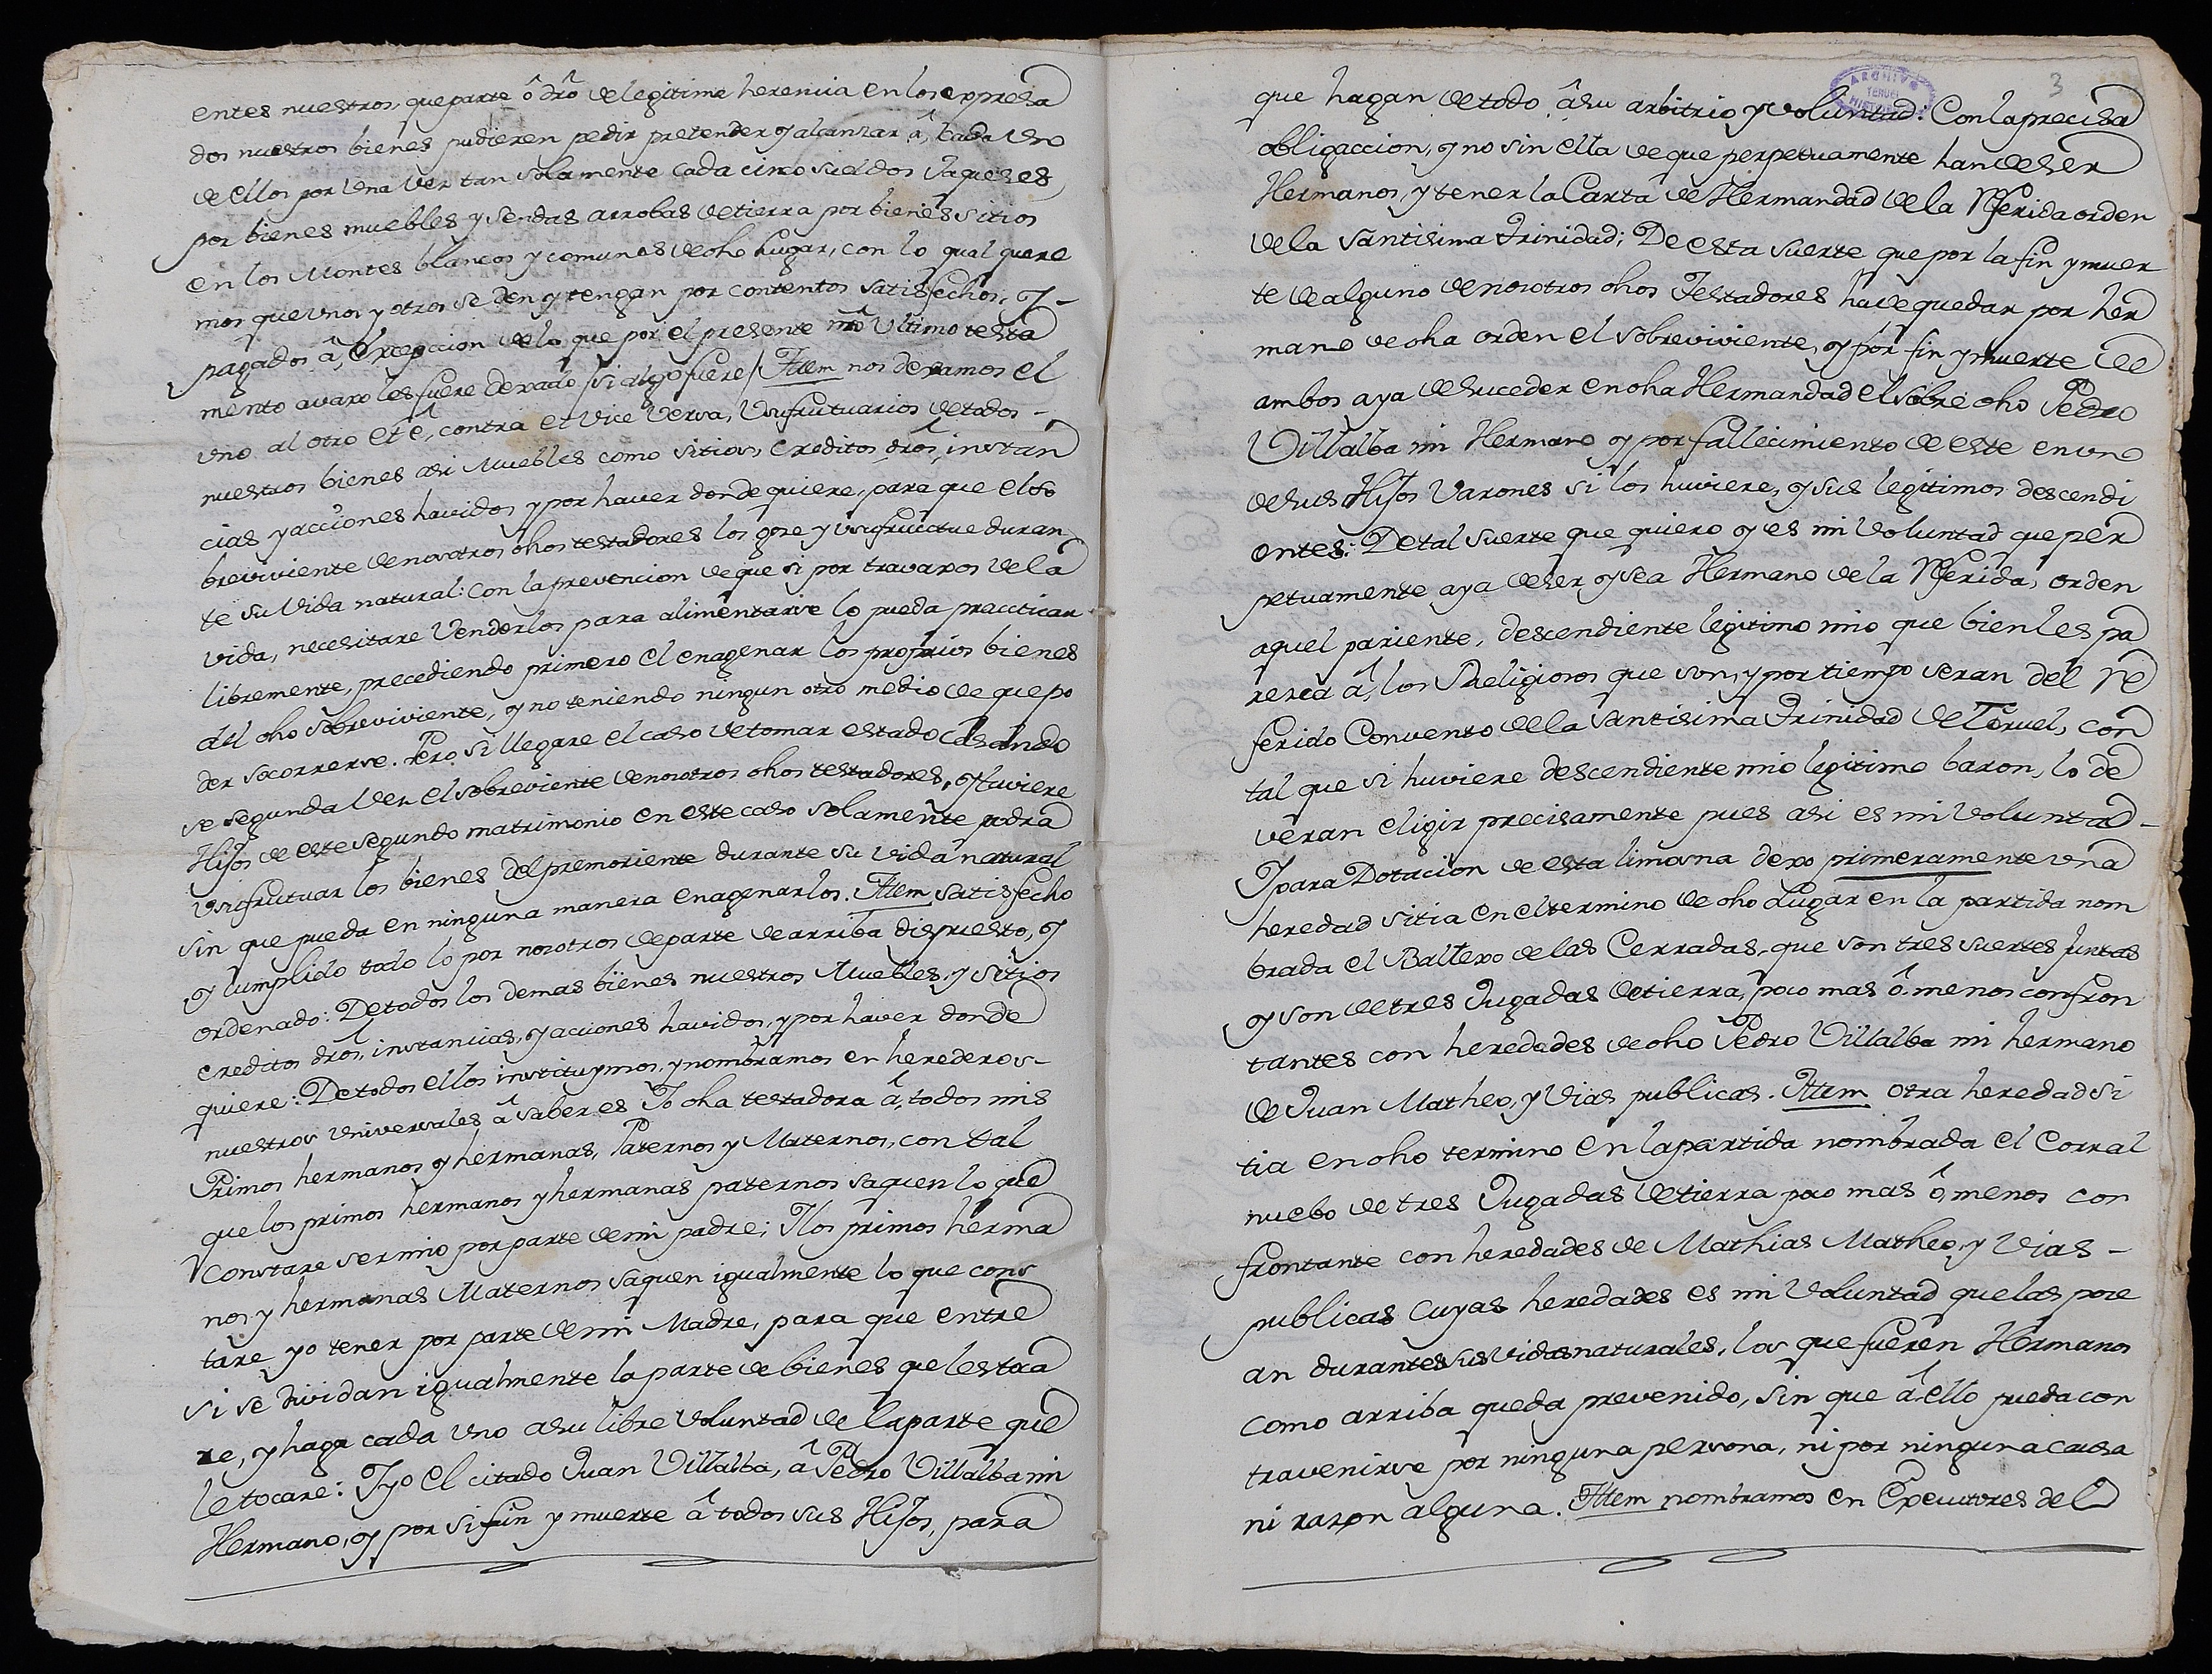 entes nuestros, que parte ô dro de legitima herencia en los expresa
dos nuestros bienes pudieren pedir pretender y alcanzar â, cada uno
de ellos por una vez tan solamente cada cinco sueldos Jaqueses
por bienes muebles y sendas arrobas de tierra por bienes sitios
en los Montes blancos y comunes de dho lugar, con lo qual quere
mos que unos y otros se den y tengan por contentos satisfechos, y -
pagados â, excepcion de lo que por el presente nro ultimo testa
mento avaxo les fuere dexado /si algo fuere/ Ittem nos dexamos el
uno al otro et ê, contra et vice versa, Usufrutuarios de todos -
nuestros bienes asi Muebles como sitios, creditos dros, instan
cias y acciones havidos y por haver donde quiere, para que el so
breviviente de nosotros dhos testadores los goze y usufructue duran
te su vida natural: Con la prevencion de que si por travaxos de la
vida, necesitare venderlos para alimentarse lo pueda practicar
libremente, precediendo primero el enagenar los proprios bienes
del dho sobreviviente, y no teniendo ningun otro medio de que po
der socorrerse. Pero si llegare el caso de tomar estado casando
se segunda vez el sobreviente de nosotros dhos testadores, y tuviere
Hijos de este segundo matrimonio en este caso solamente podra
usufrutuar los bienes del premoriente durante su vida natural
sin que pueda en ninguna manera enagenarlos. Ittem satisfecho
y cumplido todo lo por nosotros de parte de arriba dispuesto, y
ordenado: De todos los demas bienes nuestros Muebles, y sitios
creditos dros, instancias, y acciones havidos, y por haver donde
quiere: De todos ellos instituymos, y nombramos en herederos -
nuestros universales â saber es Yo dha testadora â, todos mis
Primos hermanos y hermanas, Paternos y Maternos, con tal
que los primos hermanos y hermanas paternos saquen lo que
constare ser mio por parte de mi padre; Ylos primos herma
nos y hermanas Maternos saquen igualmente lo que cons
tare yo tener por parte de mi Madre, para que entre
si se dividan igualmente la parte de bienes que les toca
re, y haga cada uno a su libre voluntad de la parte que
le tocare: Y yo el citado Juan Villalba, â Pedro Villalba mi
Hermano, y por si fin y muerte â todos sus Hijos, para
3
ARCHIVO
TERUEL
que hagan de todo âsu arbitrio y voluntad: Con la precisa
obligaccion, y no sin ella de que perpetuamente han de ser
Hermanos, y tener la Carta de Hermandad de la Rferida orden
de la Santisima Trinidad; De esta suerte que por la fin y muer
te de alguno de nosotros dhos Testadores ha de quedar por her
mano de dha orden el sobreviviente, y por fin y muerte de
ambos aya de suceder en dha Hermandad el sobre dho Pedro
Villalba mi Hermano y por fallecimiento de este en uno
de sus Hijos Varones si los huviere, y sus legitimos descendi
entes: De tal suerte que quiero y es mi voluntad que per
petuamente aya de ser, y sea Hermano de la Rferida, orden
aquel pariente, descendiente legitimo mio que bien les pa
rezca â, los Religiosos que son, y por tiempo seran del re
ferido Convento de la Santisima Trinidad de Teruel, con
tal que si huviere descendiente mio legitimo baron, lo de
veran eligir precisamente pues asi es mi voluntad -
Y para Dotacion de esta limosna dexo primeramente una
heredad sitia en el termino de dho Lugar en la partida nom
brada el Ballexo de las Cerradas, que son tres suertes juntas
y son de tres Jugadas de tierra, poco mas ô, menos confron
tantes con heredades de dho Pedro Villalba mi hermano
de Juan Matheo, y vias publicas. Ittem otra heredad si
tia en dho termino en la partida nombrada el Corral
nuebo de tres Jugadas de tierra poco mas ô, menos con
frontante con heredades de Mathias Matheo, y vias -
publicas cuyas heredades es mi voluntad que las pose
an durantes sus vidas naturales, los que fueren Hermanos
como arriba queda prevenido, sin que â ello pueda con
travenirse por ninguna persona, ni por ninguna causa
ni razon alguna. Ittem nombramos en Executores del